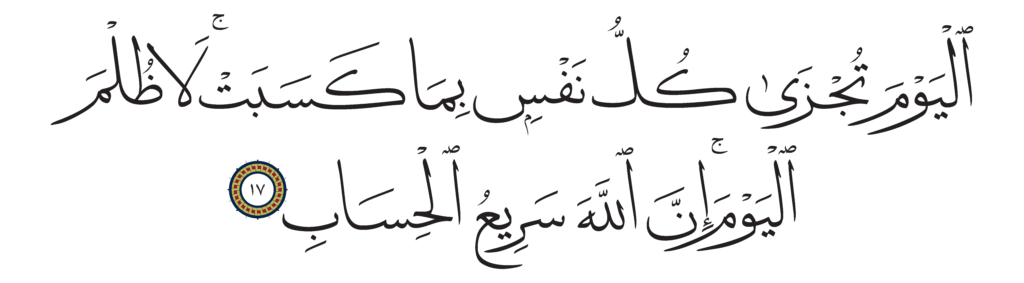 ٱلْيَوْمَ تُجْزَىٰ كُلُّ نَفْسٍۭ بِمَا كَسَبَتْ ۚ لَا ظُلْمَ
ٱلْيَوْمَ ۚ إِنَّ ٱللَّهَ سَرِيعُ ٱلْحِسَابِ ١٧